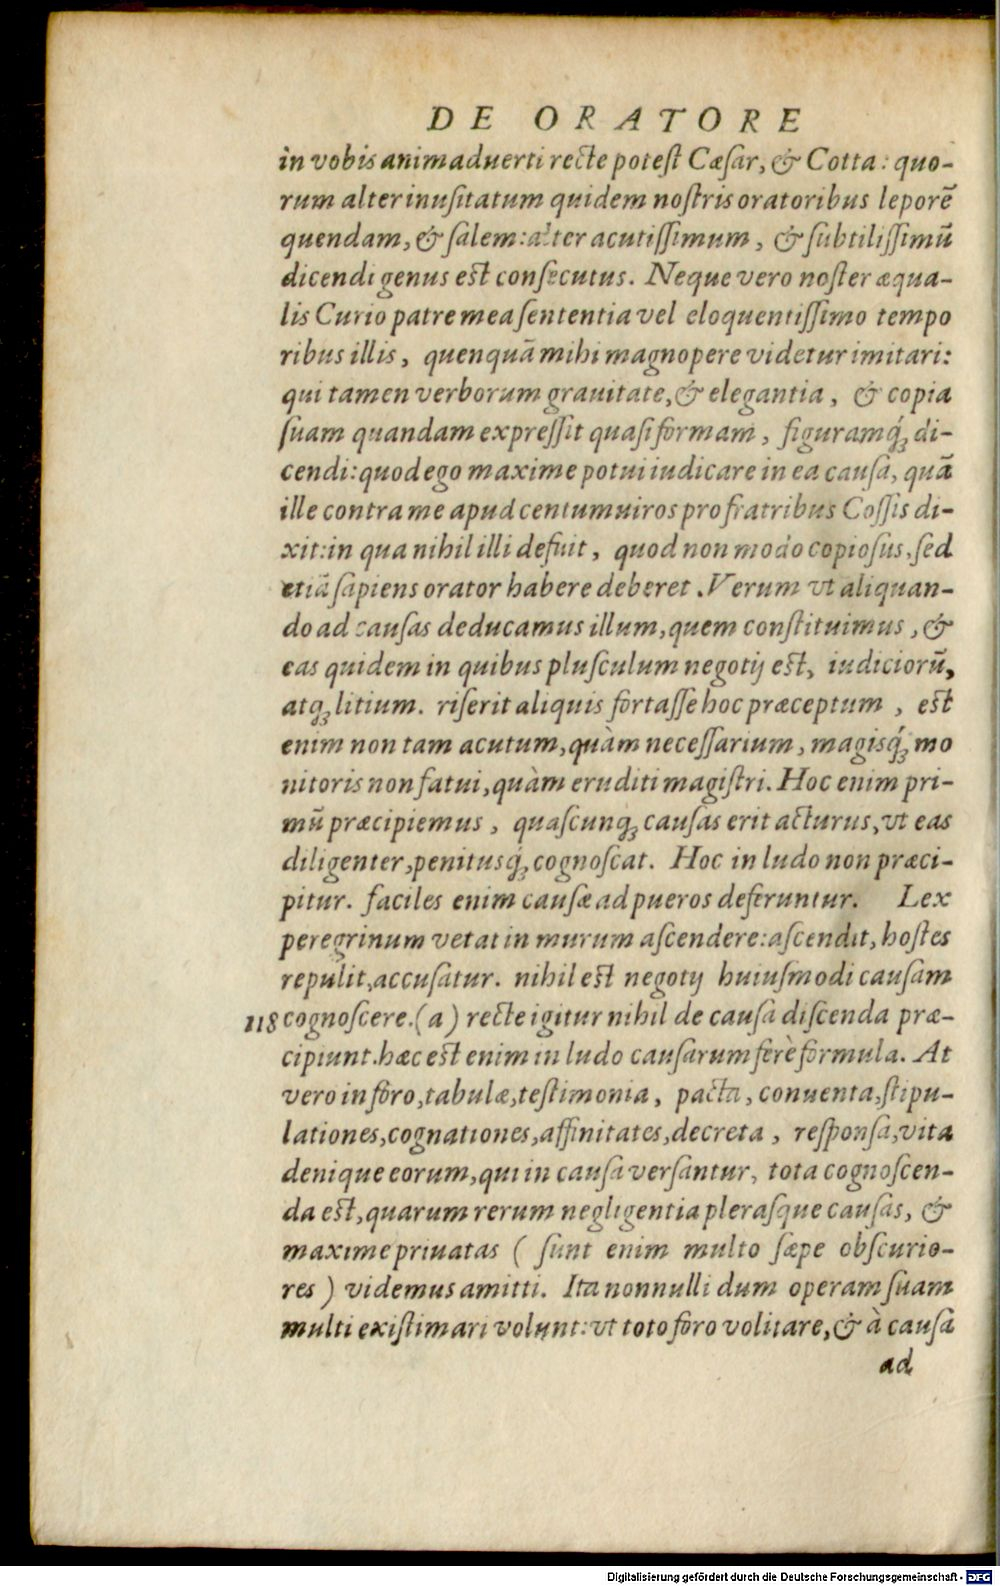 DE ORATORE
in vobis animaduerti recte potest Cæsar, & Cotta: quo-
rum alter inusitatum quidem nostris oratoribus leporē
quendam, & salem: alter acutissimum, & subtilissimū
dicendi genus est consecutus. Neque vero noster æqua-
lis Curio patre mea sententia vel eloquentissimo tempo
ribus illis, quenquā mihi magnopere videtur imitari:
qui tamen verborum grauitate, & elegantia, & copia
suam quandam expressit quasi formam, figuramq́ꝫ di-
cendi: quod ego maxime potui iudicare in ea causa, quā
ille contra me apud centumuiros pro fratribus Cossis di-
xit: in qua nihil illi defuit, quod non modo copiosus, sed
etiā sapiens orator habere deberet. Verum vt aliquan-
do ad causas deducamus illum, quem constituimus, &
eas quidem in quibus plusculum negotij est, iudiciorū,
atqꝫ litium. riserit aliquis fortasse hoc præceptum, est
enim non tam acutum, quàm necessarium, magisq́ꝫ mo
nitoris non fatui, quàm eruditi magistri. Hoc enim pri-
mū præcipiemus, quascunqꝫ causas erit acturus, vt eas
diligenter, penitusq́ꝫ cognoscat. Hoc in ludo non præci-
pitur. faciles enim causæ ad pueros deferuntur. Lex
peregrinum vetat in murum ascendere: ascendit, hostes
repulit, accusatur. nihil est negotij huiusmodi causam
118 cognoscere. (a) recte igitur nihil de causa discenda præ-
cipiunt. hæc est enim in ludo causarum ferè formula. At
vero in foro, tabulæ, testimonia, pacta, conuenta, stipu-
lationes, cognationes, affinitates, decreta, responsa, vita
denique eorum, qui in causa versantur, tota cognoscen-
da est, quarum rerum negligentia plerasque causas, &
maxime priuatas ( sunt enim multo sæpe obscurio-
res ) videmus amitti. Ita nonnulli dum operam suam
multi existimari volunt: vt toto foro volitare, & à causa
ad
Digitalisierung gefördert durch die Deutsche Forschungsgemeinschaft - DFG